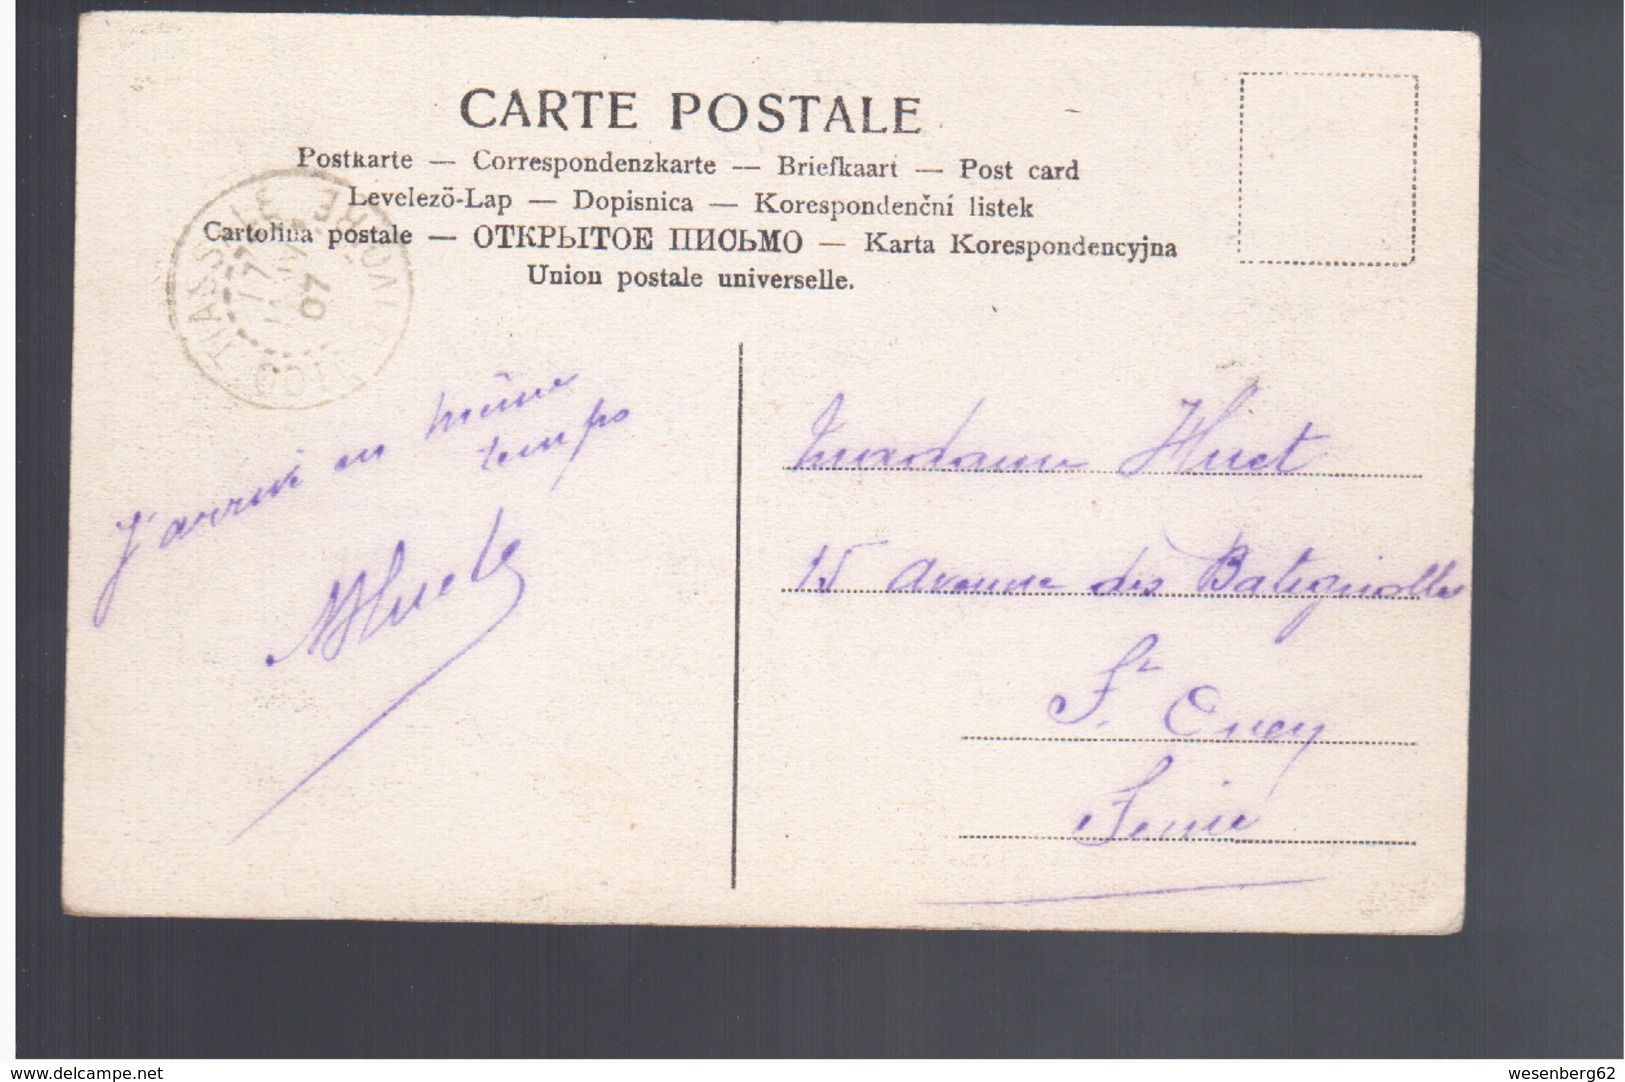 CARTE POSTALE
Postkarte — Correspondenzkarte — Briefkaart — Post card
Levelezö-Lap — Dopisnica — Korespondenční listek
Cartolina postale — ОТКРЫТОЕ ПИСЬМО — Karta Korespondencyjna
Union postale universelle.
TIASSALE
COTE D'IVOIRE
17
07
J'arrive en même
temps
Huet
Madame Huet
15 Avenue des Batignolles
St Ouen
Seine
www.delcampe.net
wesenberg62